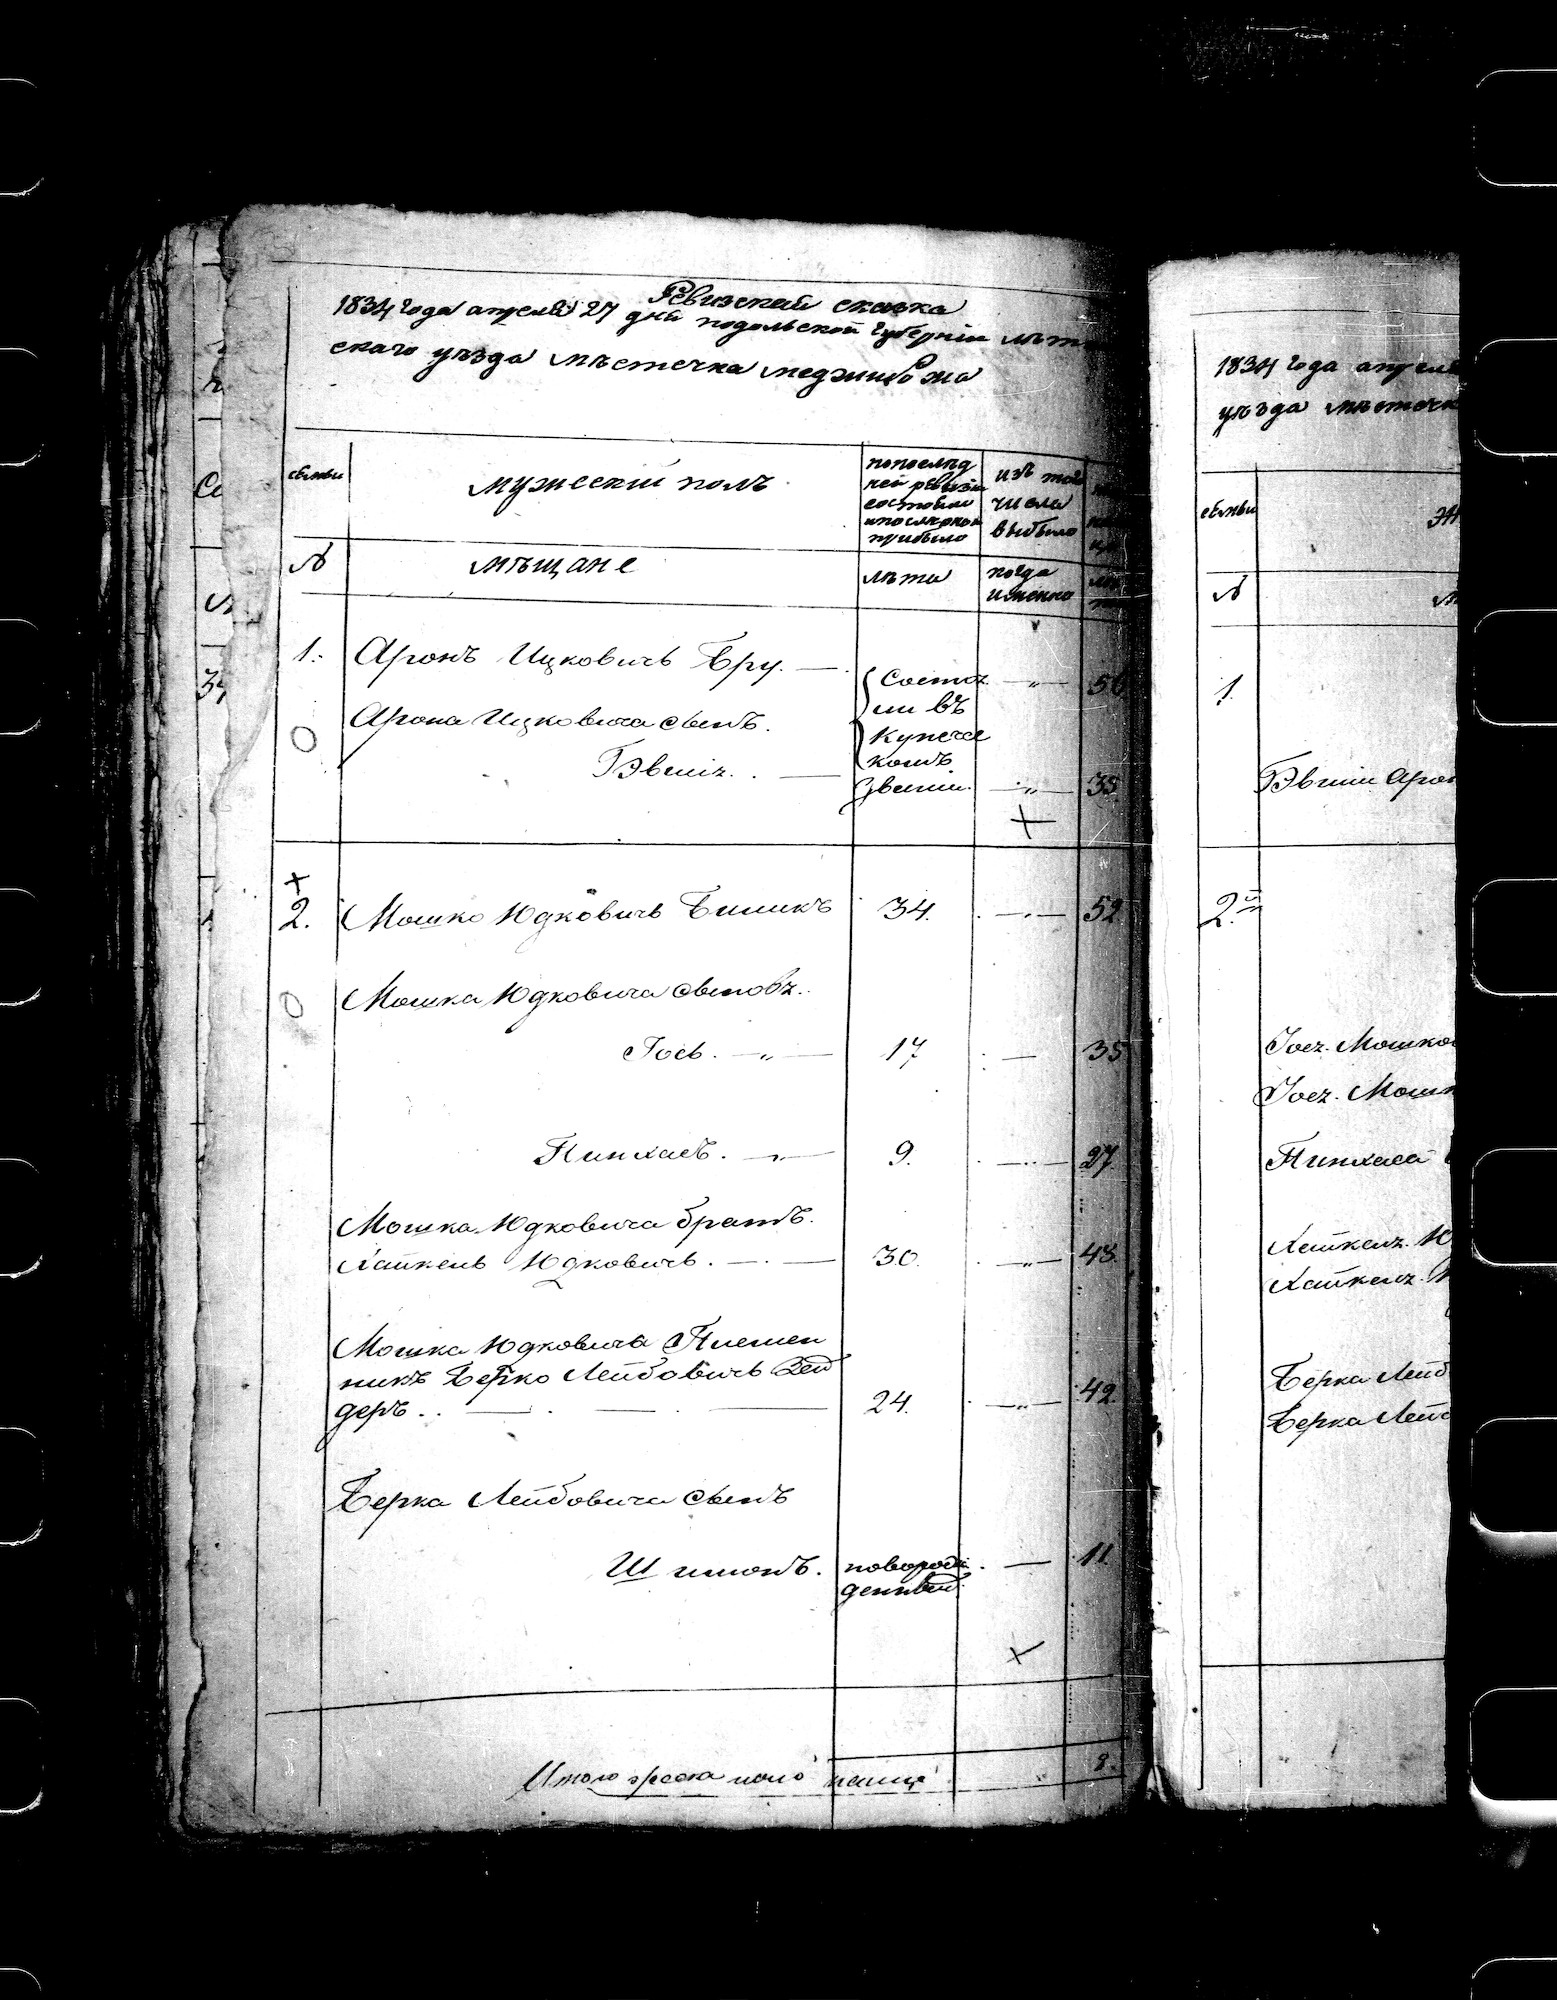 Ревизская сказка
1834 года апреля 27 дня подольской губерніи
скаго уѣзда мѣстечка меджибожа
семьи
мужескій полъ
попослѣд
ней ревизіи
состояло
ипослѣ оной
прибыло
изъ того
числа
выбыло
№
мѣщане
лѣта
когда
именно
1. Аронъ Ицковичъ Бру. 56
Состоя
ли въ
Купечес
комъ
Званіи
Арона Ицковича сынъ.
35
2. Мошко Юдковичъ 34. 52
Мошка Юдковича сыновъя.
Іось. 17 35
Пинхасъ. 9. 27
Мошка Юдковича братъ.
Хайкель Юдковичъ. 30. 48
Мошка Юдковича Племен
никъ Берко Лейбовичъ Зей
деръ.. 24. 42
Берка Лейбовича сынъ
Шимонъ. новорож 11.
денный.
Итого 8.
1834 года апреля
уѣзда мѣстечк
семьи
№
1.
Арон
2.
Іося. Мошков
Іося. Мошк
Пинхаса
Хайкеля. Ю
Хайкеля.
Берка Лейб
Берка Лейб